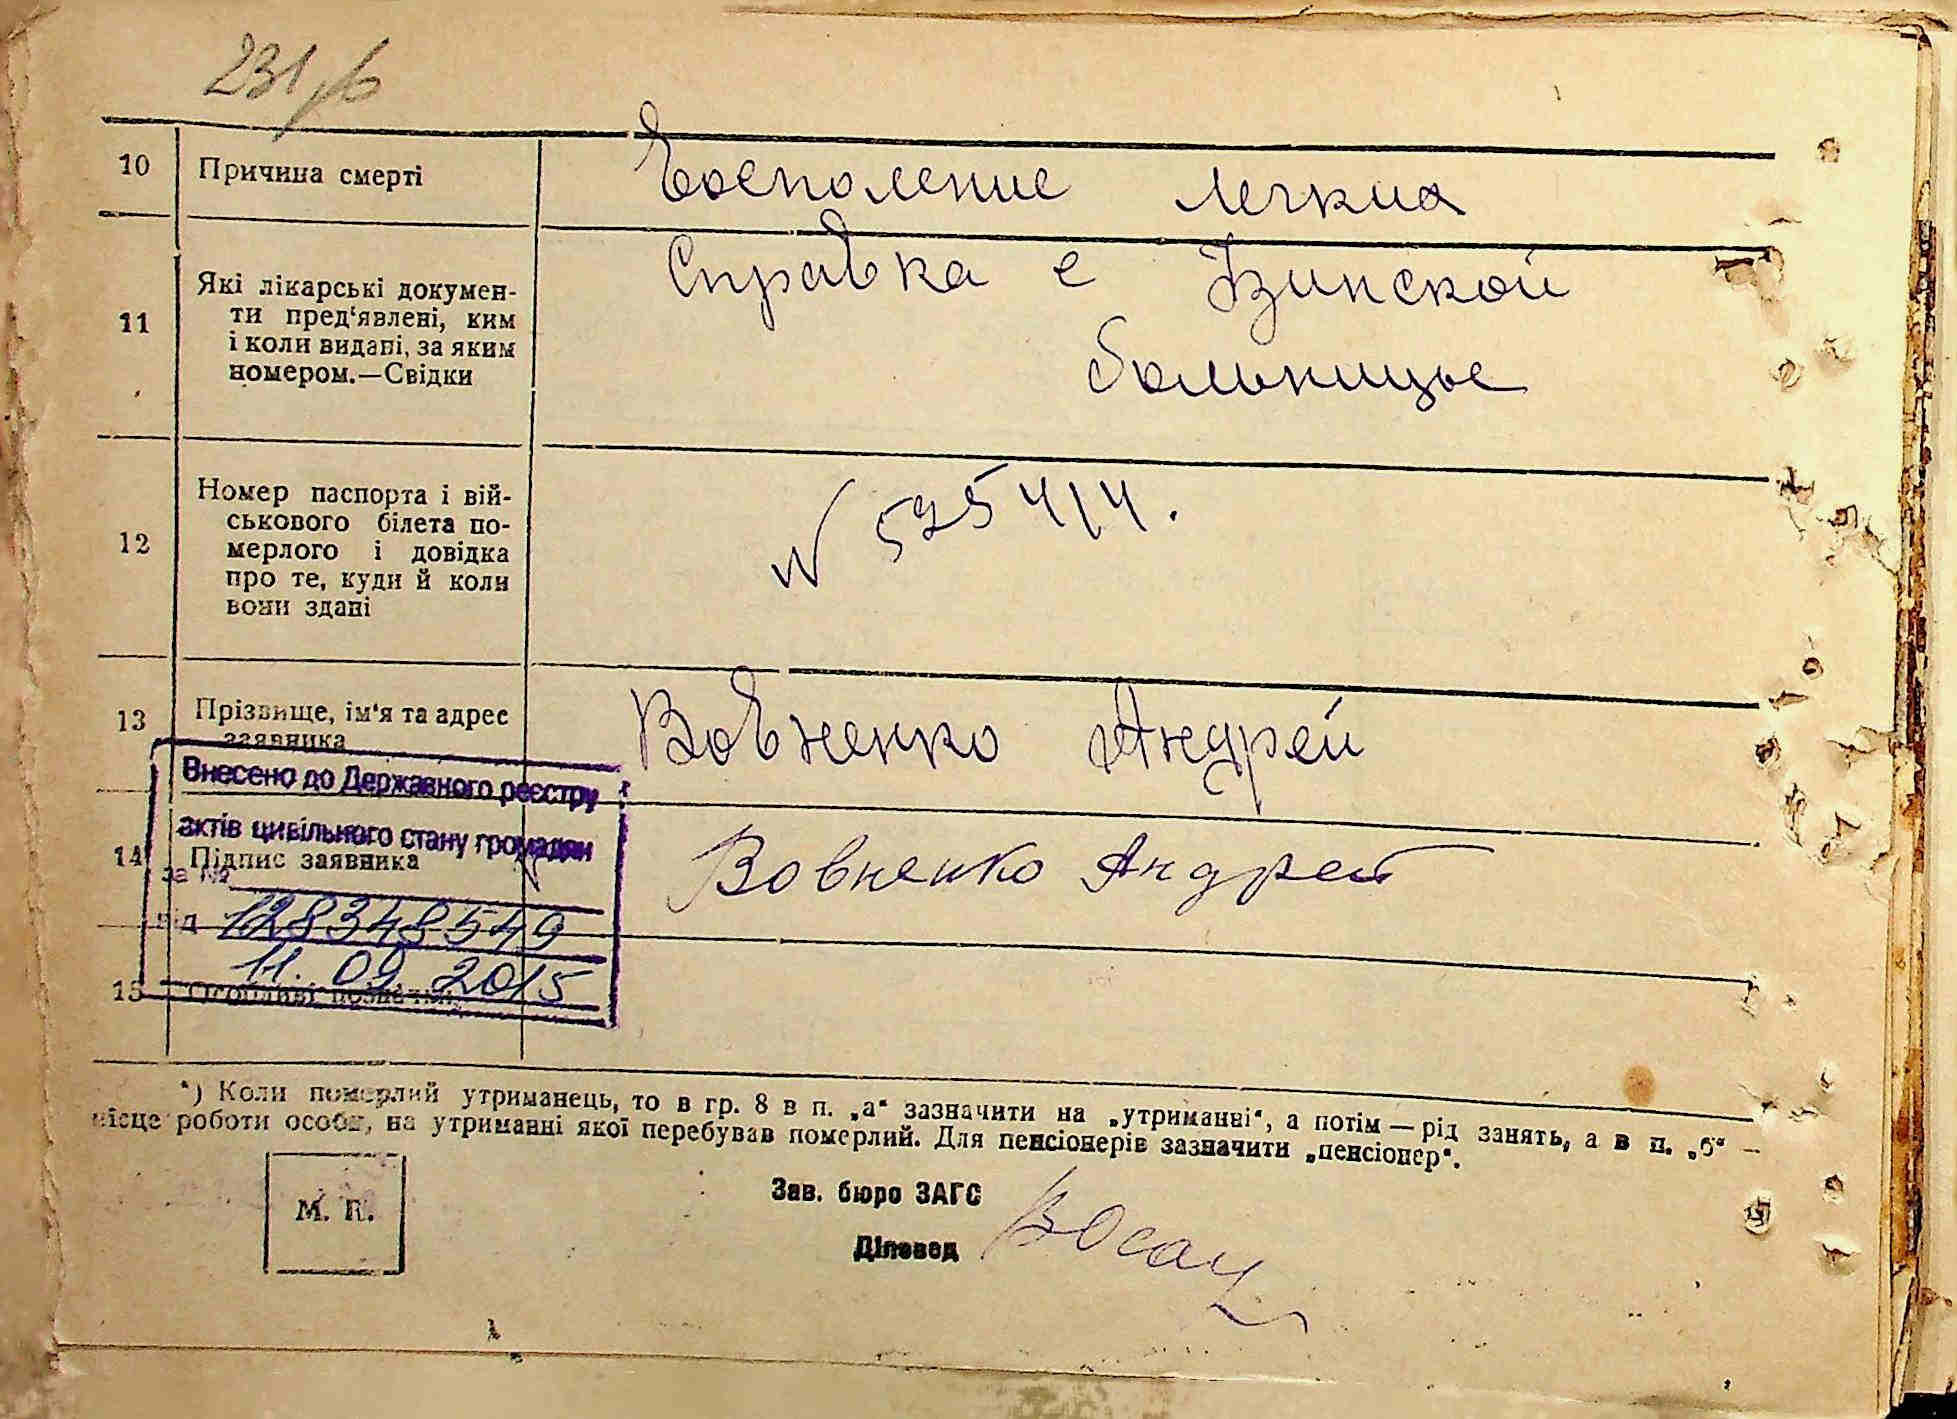 231
10 Причина смерті Воспаление легких
11 Які лікарські докумен-
ти пред'явлені, ким
і коли видані, за яким
номером.—Свідки
Справка с
больницые
12 Номер паспорта і вій-
ськового білета по-
мерлого і довідка
про те, куди й коли
вони здані
N 575414.
13 Прізвище, ім'я та адрес
заявника
Вовненко Андрей
Внесено до Державного реєстру
актів цивільного стану громадян
14 Підпис заявника Вовненко Андрей
за №
від 128348549
11.09.2015
15 Особливі позначки
*) Коли померлий утриманець, то в гр. 8 в п. „а“ зазначити на „утриманні“, а потім — рід занять, а в п. „б“ —
місце роботи особи, на утриманні якої перебував померлий. Для пенсіонерів зазначити „пенсіонер“.
М. П.
Зав. бюро ЗАГС
Діловод